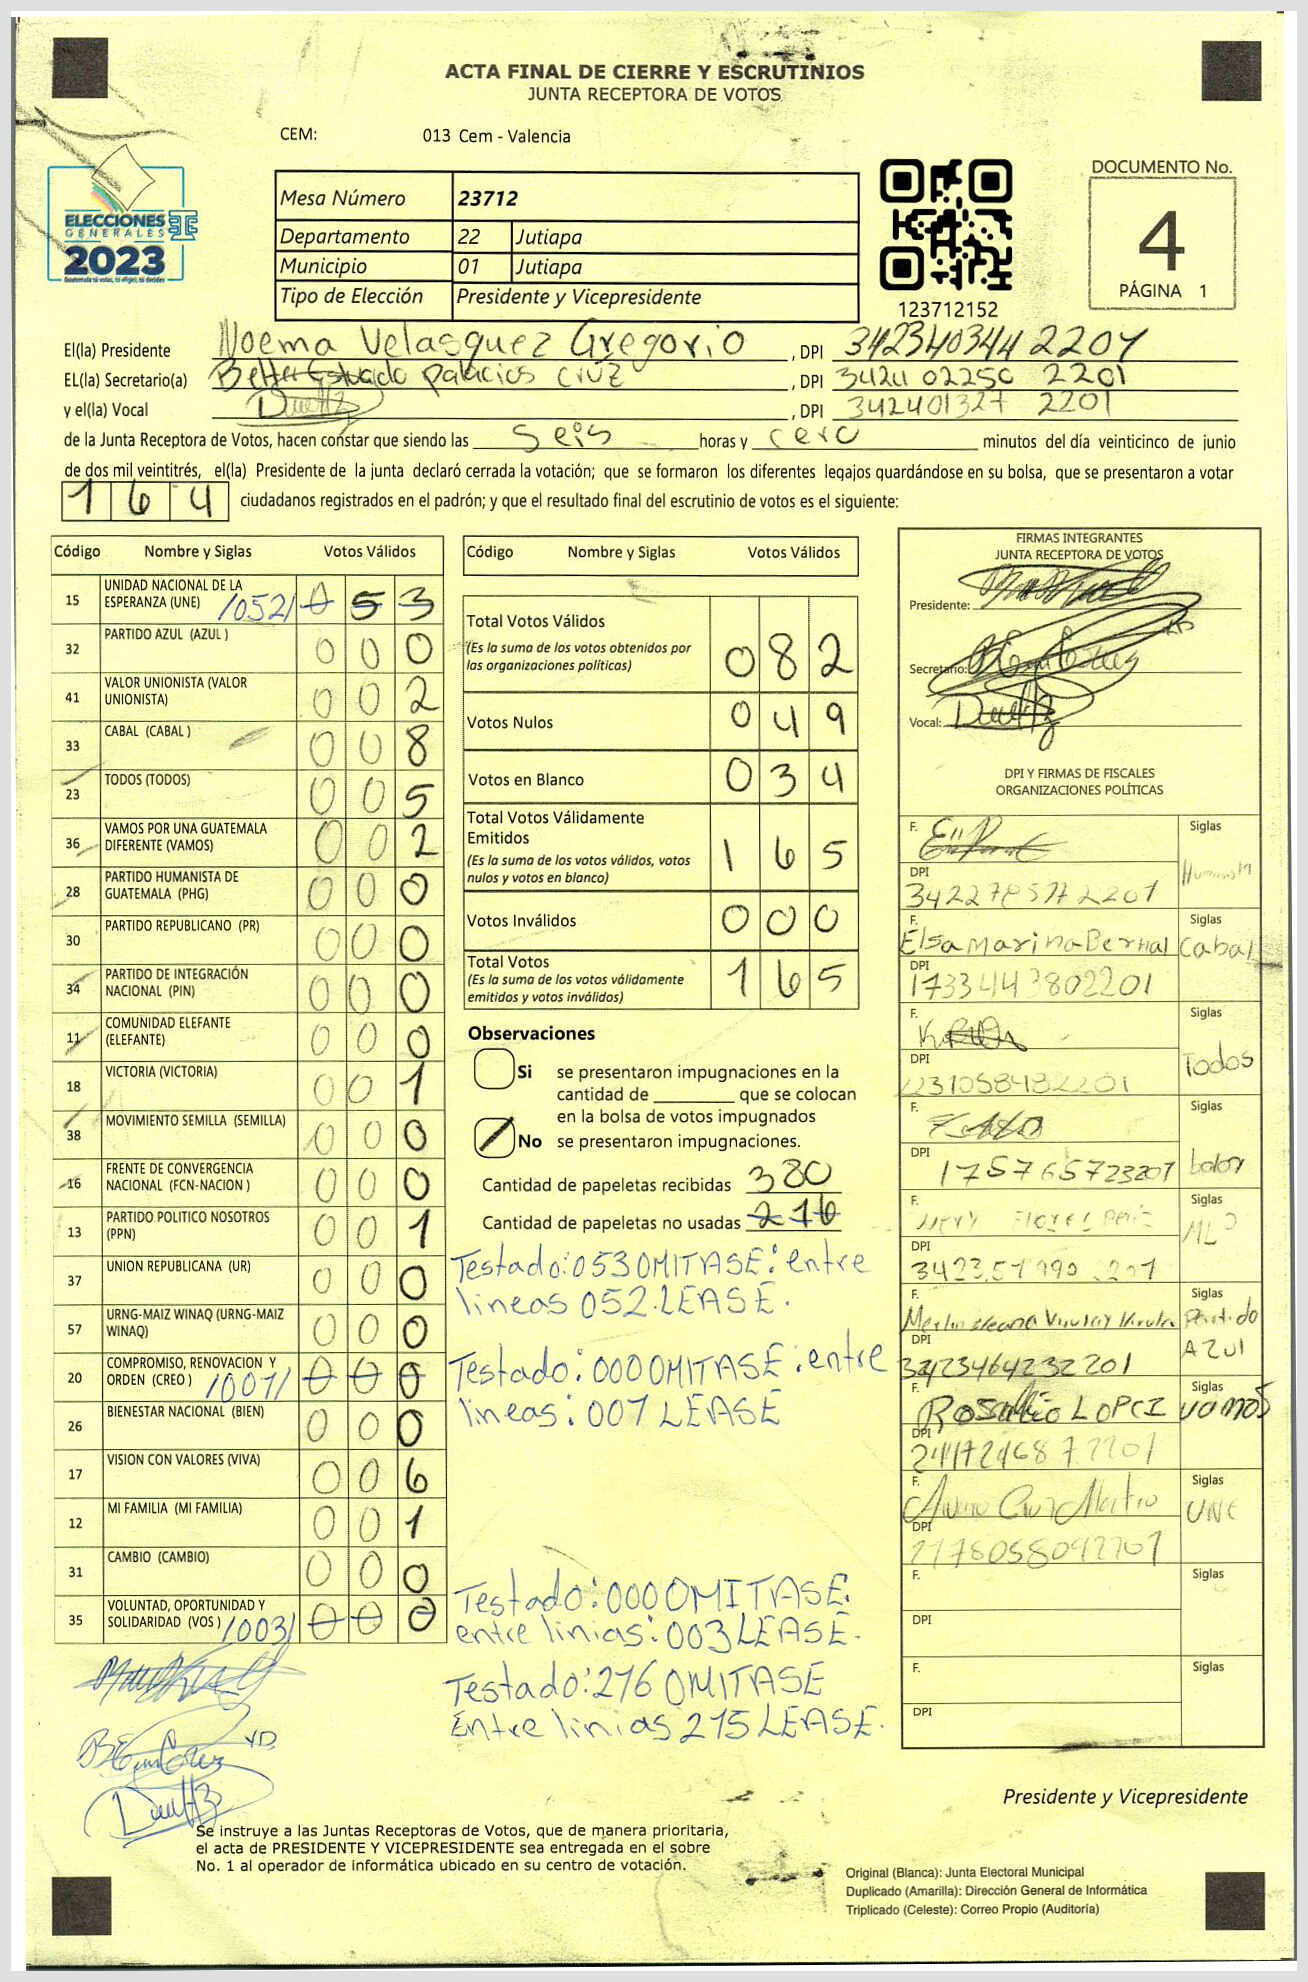 ACTA FINAL DE CIERRE Y ESCRUTINIOS
JUNTA RECEPTORA DE VOTOS
CEM: 013 Cem - Valencia
ELECCIONES
GENERALES
2023
Guatemala tú votas, tú eliges, tú decides
Mesa Número 23712
Departamento 22 Jutiapa
Municipio 01 Jutiapa
Tipo de Elección Presidente y Vicepresidente
123712152
DOCUMENTO No.
4
PÁGINA 1
El(la) Presidente Noema Velasquez Gregorio , DPI 342340344 2201
EL(la) Secretario(a) Palacios Cruz , DPI 3424 02250 2201
y el(la) Vocal , DPI 342401327 2201
de la Junta Receptora de Votos, hacen constar que siendo las seis horas y cero minutos del día veinticinco de junio
de dos mil veintitrés, el(la) Presidente de la junta declaró cerrada la votación; que se formaron los diferentes legajos quardándose en su bolsa, que se presentaron a votar
164 ciudadanos registrados en el padrón; y que el resultado final del escrutinio de votos es el siguiente:
Código Nombre y Siglas Votos Válidos
15 UNIDAD NACIONAL DE LA ESPERANZA (UNE) /052/ 0 5 3
32 PARTIDO AZUL (AZUL ) 0 0 0
41 VALOR UNIONISTA (VALOR UNIONISTA) 0 0 2
33 CABAL (CABAL ) 0 0 8
23 TODOS (TODOS) 0 0 5
36 VAMOS POR UNA GUATEMALA DIFERENTE (VAMOS) 0 0 2
28 PARTIDO HUMANISTA DE GUATEMALA (PHG) 0 0 0
30 PARTIDO REPUBLICANO (PR) 0 0 0
34 PARTIDO DE INTEGRACIÓN NACIONAL (PIN) 0 0 0
11 COMUNIDAD ELEFANTE (ELEFANTE) 0 0 0
18 VICTORIA (VICTORIA) 0 0 1
38 MOVIMIENTO SEMILLA (SEMILLA) 0 0 0
16 FRENTE DE CONVERGENCIA NACIONAL (FCN-NACION ) 0 0 0
13 PARTIDO POLITICO NOSOTROS (PPN) 0 0 1
37 UNION REPUBLICANA (UR) 0 0 0
57 URNG-MAIZ WINAQ (URNG-MAIZ WINAQ) 0 0 0
20 COMPROMISO, RENOVACION Y ORDEN (CREO ) /001/ 0 0 0
26 BIENESTAR NACIONAL (BIEN) 0 0 0
17 VISION CON VALORES (VIVA) 0 0 6
12 MI FAMILIA (MI FAMILIA) 0 0 1
31 CAMBIO (CAMBIO) 0 0 0
35 VOLUNTAD, OPORTUNIDAD Y SOLIDARIDAD (VOS ) /003/ 0 0 0
Código Nombre y Siglas Votos Válidos
Total Votos Válidos
(Es la suma de los votos obtenidos por
las organizaciones políticas) 0 8 2
Votos Nulos 0 4 9
Votos en Blanco 0 3 4
Total Votos Válidamente
Emitidos
(Es la suma de los votos válidos, votos
nulos y votos en blanco) 1 6 5
Votos Inválidos 0 0 0
Total Votos
(Es la suma de los votos válidamente
emitidos y votos inválidos) 1 6 5
Observaciones
Si se presentaron impugnaciones en la
cantidad de que se colocan
en la bolsa de votos impugnados
No se presentaron impugnaciones.
Cantidad de papeletas recibidas 380
Cantidad de papeletas no usadas 216
Testado: 053 OMITASE: entre
lineas 052. LEASE.
Testado: 000 OMITASE: entre
lineas: 001 LEASE
Testado: 000 OMITASE.
entre linias: 003 LEASE.
Testado: 216 OMITASE
Entre linias 215 LEASE.
FIRMAS INTEGRANTES
JUNTA RECEPTORA DE VOTOS
Presidente:
Secretario:
Vocal:
DPI Y FIRMAS DE FISCALES
ORGANIZACIONES POLÍTICAS
F. Siglas
DPI
F. Elsa Marina Bernal Siglas Cabal
DPI 1733443802201
F. Siglas Todos
DPI
F. Siglas
DPI 1757657232201
F. Siglas
DPI
F. Siglas Partido
AZUL
DPI 3423464232201
F. Siglas vamos
DPI
F. Siglas UNE
DPI
F. Siglas
DPI
F. Siglas
DPI
Presidente y Vicepresidente
Se instruye a las Juntas Receptoras de Votos, que de manera prioritaria,
el acta de PRESIDENTE Y VICEPRESIDENTE sea entregada en el sobre
No. 1 al operador de informática ubicado en su centro de votación.
Original (Blanca): Junta Electoral Municipal
Duplicado (Amarilla): Dirección General de Informática
Triplicado (Celeste): Correo Propio (Auditoría)